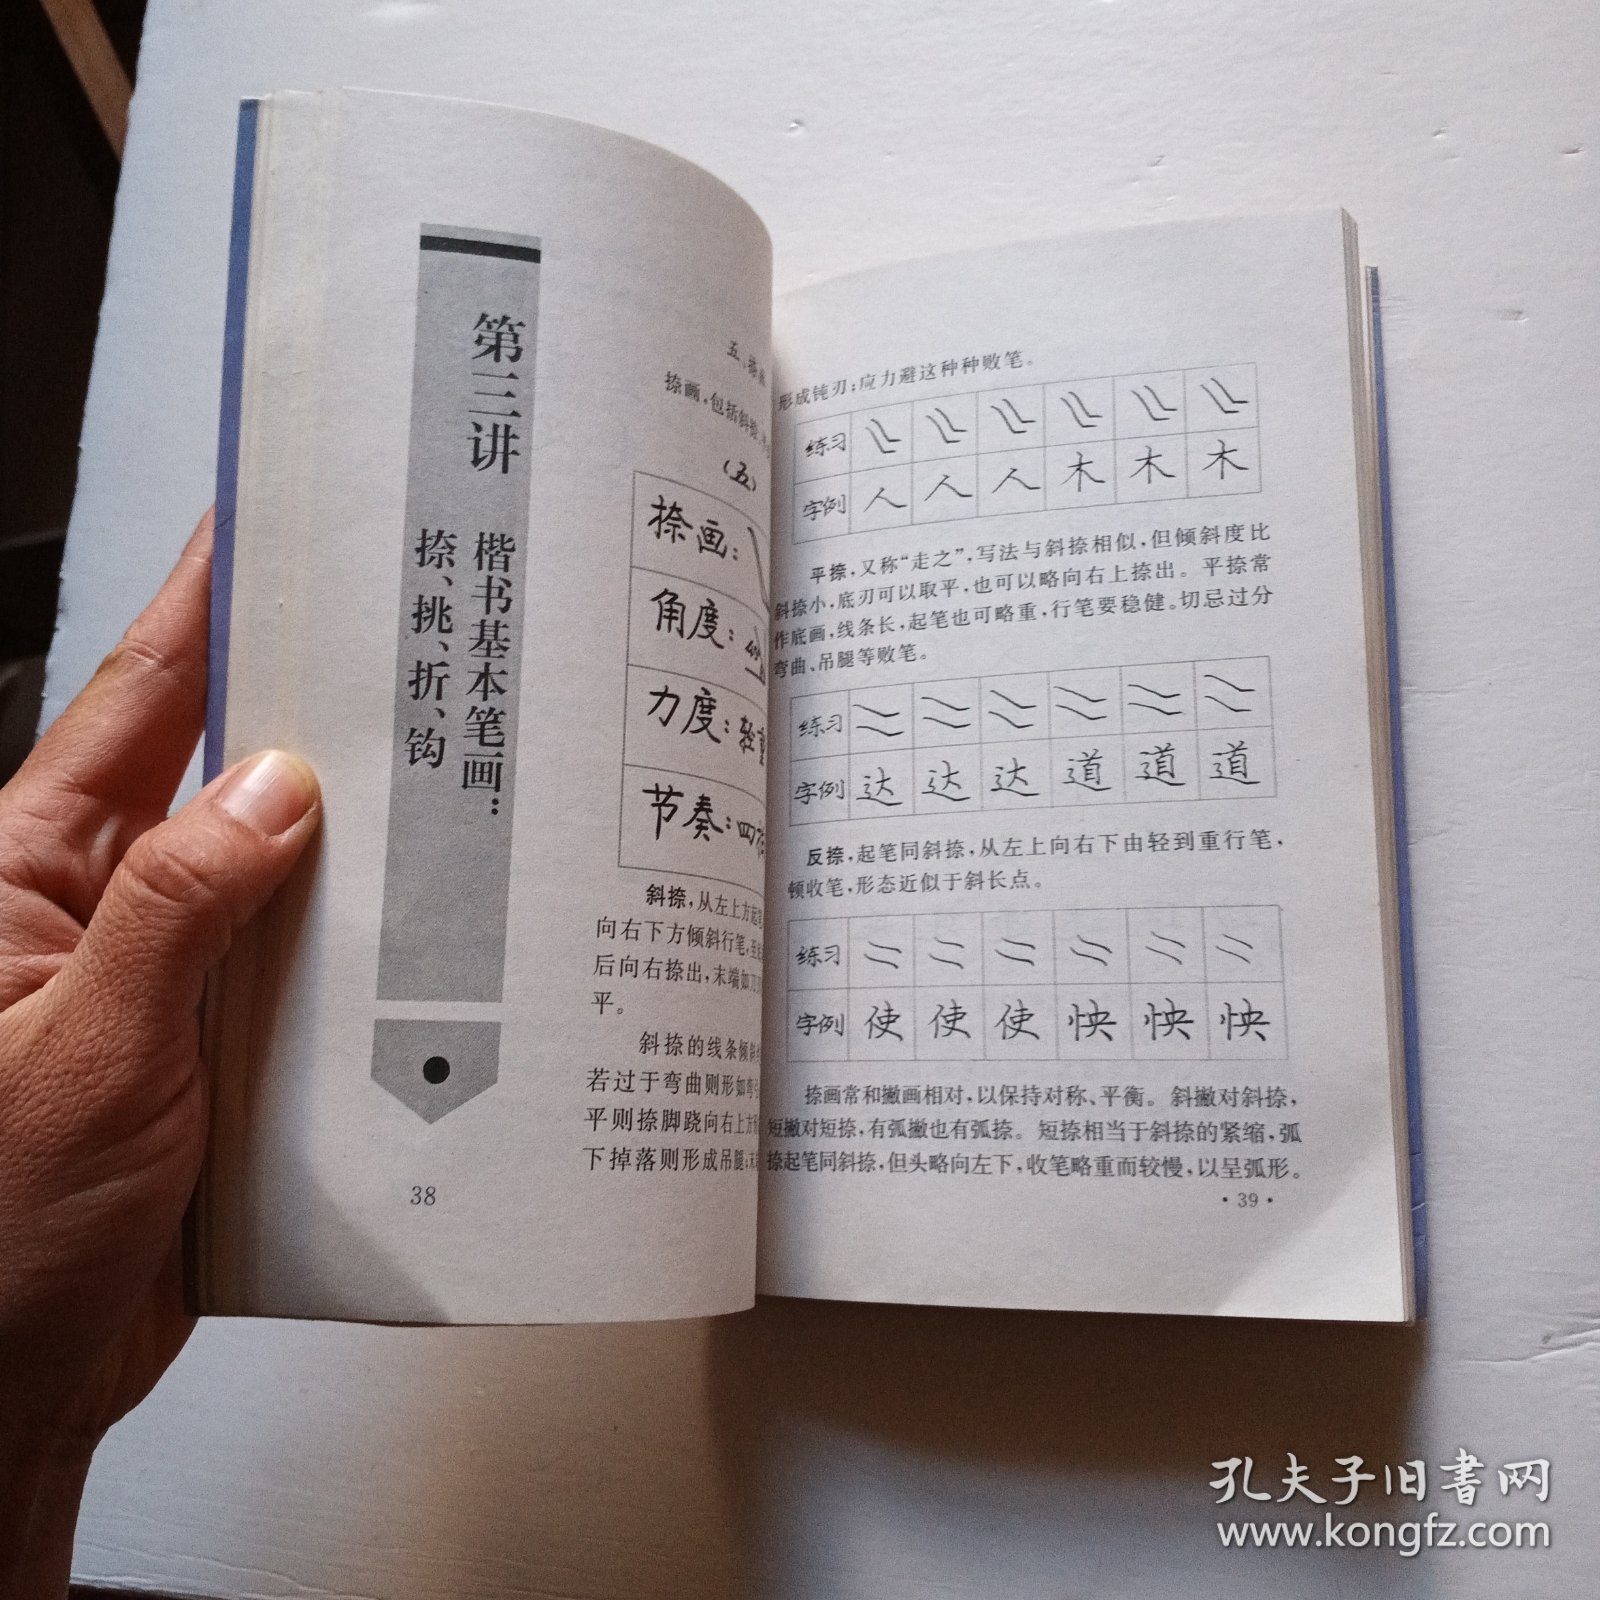 第三讲
楷书基本笔画：
捺、挑、折、钩
五、捺画
捺画，包括斜捺、
（五）
捺画：
角度：
力度：轻重
节奏：四
斜捺，从左上方起笔
向右下方倾斜行笔，至
后向右捺出，末端如刀
平。
斜捺的线条倾斜
若过于弯曲则形如弯
平则捺脚跷向右上方
下掉落则形成吊腿；末
38
形成钝刃；应力避这种种败笔。
练习
字例 人 人 人 木 木 木
平捺，又称“走之”，写法与斜捺相似，但倾斜度比
斜捺小，底刃可以取平，也可以略向右上捺出。平捺常
作底画，线条长，起笔也可略重，行笔要稳健。切忌过分
弯曲、吊腿等败笔。
练习
字例 达 达 达 道 道 道
反捺，起笔同斜捺，从左上向右下由轻到重行笔，
顿收笔，形态近似于斜长点。
练习
字例 使 使 使 怏 怏 怏
捺画常和撇画相对，以保持对称、平衡。斜撇对斜捺，
短撇对短捺，有弧撇也有弧捺。短捺相当于斜捺的紧缩，弧
捺起笔同斜捺，但头略向左下，收笔略重而较慢，以呈弧形。
·39·
孔夫子旧书网
www.kongfz.com